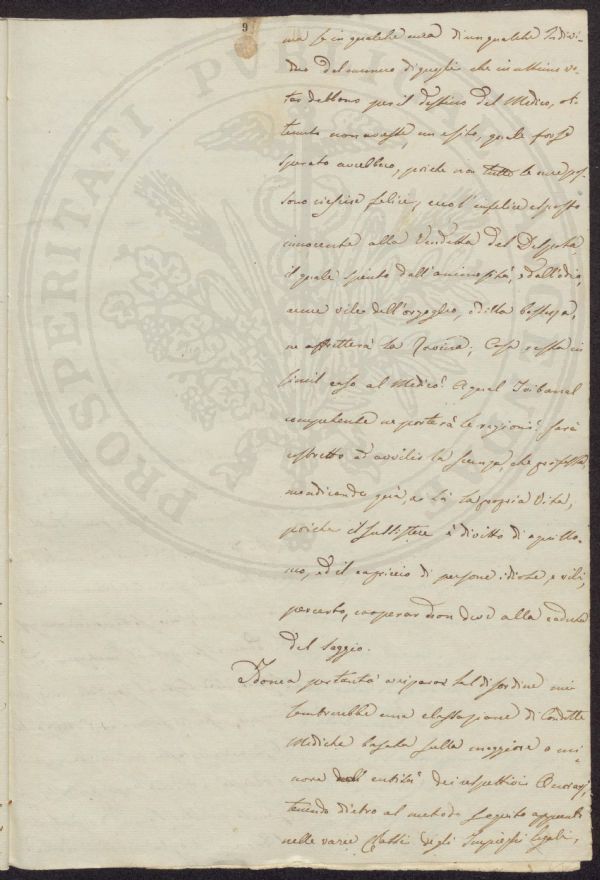 9
ma se in qualche cura di un qualche Indivi-
duo del numero di quegli che in ultimo vo-
tar debbono per il destino del Medico, ot-
tenuto non avesse un esito, quale forse
sperato avrebbero, poiche non tutte le cure pos-
sono riescire felici, ecco l'infelice esposto
innocente alla Vendetta del Despota,
il quale spinto dall'animosità, e dall'odio,
arme vile dell'orgoglio, e della bassezza,
ne affretterà la rovina; Cosa resta in
simil caso al Medico? A qual Tribunal
competente ne porterà le ragioni? Sarà
costretto ad avvilir la scienza, che professa
mendicando quà, e là la propria Vita,
poiche il sussistere è diritto di ogni Uo-
mo, ed il capriccio di persone idiote, e vili,
per certo, cooperar non deve alla caduta
del Saggio.
Idonea pertanto a riparar tal disordine mi
sembrerebbe una classazione di Condotte
Mediche basata sulla maggiore o mi-
nore entità dei respettivi Onorarj,
tenendo dietro al metodo seguito appunto
nelle varie Classi degli Impieghi legali,
PROSPERITATI PUBLICAE